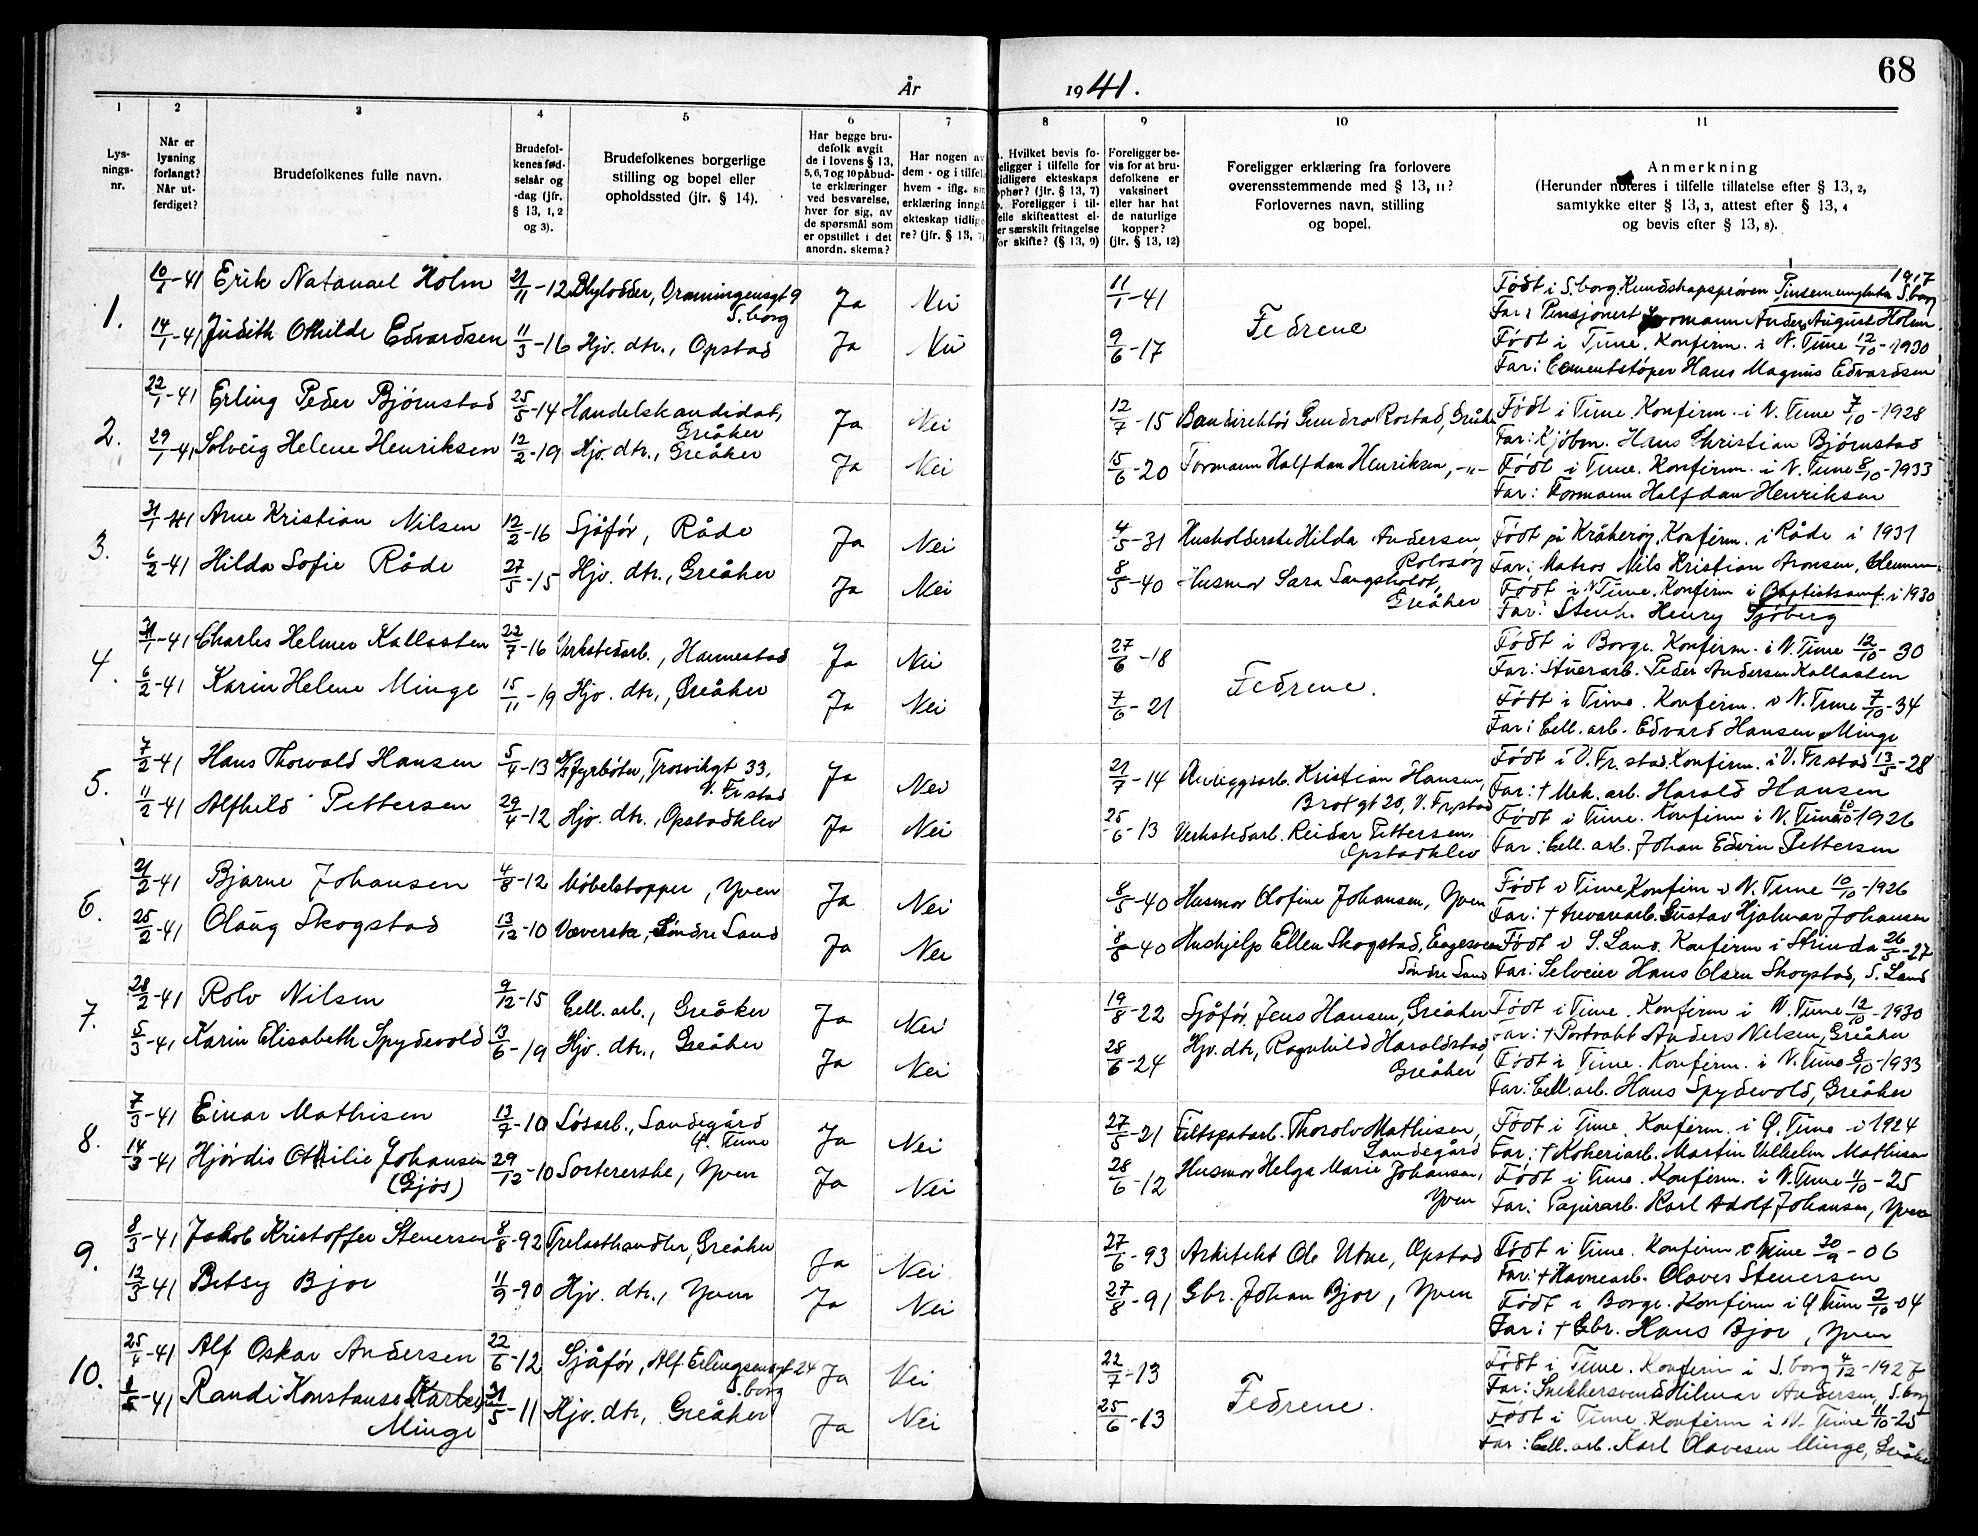 68
År 1941.
1 2 3 4 5 6 7 8 9 10 11
Lysningsnr.
Når er lysning forlangt? Når utferdiget?
Brudefolkenes fulle navn.
Brudefolkenes fødselsår og -dag (jfr. § 13, 1, 2 og 3).
Brudefolkenes borgerlige stilling og bopel eller opholdssted (jfr. § 14).
Har begge brudefolk avgit de i lovens § 13, 5, 6, 7 og 10 påbudte erklæringer ved besvarelse, hver for sig, av de spørsmål som er opstillet i det anordn. skema?
Har nogen av dem - og i tilfelle hvem - iflg. sin erklæring inngått ekteskap tidligere? (jfr. § 13, 7)
Hvilket bevis foreligger i tilfelle for tidligere ekteskaps ophør? (jfr. § 13, 7) Foreligger i tilfelle skifteattest eller særskilt fritagelse for skifte? (§ 13, 9)
Foreligger bevis for at brudefolkene er vaksinert eller har hat de naturlige kopper? (jfr. § 13, 12)
Foreligger erklæring fra forlovere overensstemmende med § 13, 11? Forlovernes navn, stilling og bopel.
Anmerkning (Herunder noteres i tilfelle tillatelse efter § 13, 2, samtykke efter § 13, 3, attest efter § 13, 4 og bevis efter § 13, 8).
1. 10/1-41 Erik Natanael Holm 21/11-12 Blylodder, gt 9 S.borg Ja Nei 11/1-41 Fedrene Født i S.borg. Kundskapsprøven 1917 S.borg
Far: Pensjonert Formann Anders August Holm.
14/1-41 Judith Othilde Edvardsen 11/3-16 Hjv. dtr., Opstad Ja Nei 9/6-17 Født i Tune. Konfirm. i N. Tune 12/10-1930
Far: Cementstøper Hans Magnus Edvardsen
2. 22/1-41 Erling Peder Bjørnstad 25/5-14 Handelskandidat, Greåker Ja Nei 12/7-15 Rostad, Greåker Født i Tune. Konfirm. i N. Tune 7/10-1928
Far: Kjøbm. Hans Christian Bjørnstad
29/1-41 Solveig Helene Henriksen 12/2-19 Hjv. dtr., Greåker Ja Nei 15/6-20 Formann Halfdan Henriksen, -"- Født i Tune. Konfirm. i N. Tune 8/10-1933
Far: Formann Halfdan Henriksen
3. 31/1-41 Arne Kristian Nilsen 12/2-16 Sjåfør, Råde Ja Nei 4/5-31 Husholderske Hilda Andersen Rolvsøy Født på Kråkerøy. Konfirm. i Råde i 1931
Far: Matros Nils Kristian Aronsen,
6/2-41 Hilda Sofie Råde 27/5-15 Hjv. dtr., Greåker Ja Nei 8/5-40 Husmor Sara Langsholdt, Greåker Født i N. Tune. Konfirm i Baptistsamf. i 1930
Far: Stenh. Henry Sjøberg
4. 31/1-41 Charles Helmer Kallasten 22/7-16 Verkstedarb., Hannestad Ja Nei 27/6-18 Fedrene. Født i Borge. Konfirm. i N. Tune 12/10-30
Far: Stuerarb. Peder Andersen Kallasten
6/2-41 Karin Helene Minge 15/11-19 Hjv. dtr., Greåker Ja Nei 7/6-21 Født i Tune. Konfirm. i N. Tune 7/10-34
Far: Cell. arb. Edvard Hansen Minge
5. 7/2-41 Hans Thorvald Hansen 5/4-13 Fyrbøter, Trosvikgt 33, V. Fr.stad Ja Nei 21/7-14 Anleggsarb. Kristian Hansen, Brotgt 20, V. Fr.stad Født i V. Fr.stad. Konfirm. i V. Fr.stad 13/5-28
Far: † Mek. arb. Harald Hansen
11/2-41 Alfhild Pettersen 29/4-12 Hjv. dtr., Opstadklev Ja Nei 25/6-13 Verkstedarb. Reidar Pettersen, Opstadklev Født i Tune. Konfirm i N. Tune 10/10-1926
Far: Cell. arb. Johan Edvin Pettersen
6. 21/2-41 Bjarne Johansen 4/8-12 Møbelstopper, Yven Ja Nei 8/5-40 Husmor Olofine Johansen, Yven Født i Tune Konfirm i N. Tune 10/10-1926
Far: † trevarearb. Gustav Hjalmar Johansen
25/2-41 Olaug Skogstad 13/12-10 Væverske, Søndre Land Ja Nei 8/5-40 Hushjelp Ellen Skogstad, Søndre Land Født i S. Land. Konfirm i Strinda 26/5-27
Far: Selveier Hans Olsen Skogstad, S. Land
7. 28/2-41 Rolv Nilsen 9/12-15 Cell. arb., Greåker Ja Nei 19/8-22 Sjåfør, Jens Hansen, Greåker Født i Tune. Konfirm i N. Tune 12/10-1930
Far: † Portvakt Anders Nelsen, Greåker
5/3-41 Karin Elisabeth Spydevold 13/6-19 Hjv. dtr., Greåker Ja Nei 28/6-24 Hjv. dtr, Ragnhild Haraldstad, Greåker Født i Tune. Konfirm. i N. Tune 8/10-1933
Far: Cell. arb. Hans Spydevold, Greåker
8. 7/3-41 Einar Mathisen 13/7-10 Løsarb., Landegård Ø. Tune Ja Nei 27/5-21 Feltspatarb. Thorolv Mathisen, Landegård Født i Tune. Konfirm. i Ø. Tune i 1924
Far: † Kokeriarb. Martin Vilhelm Mathisen
14/3-41 Hjørdis Othilie Johansen (Gjøs) 29/12-10 Sortererske, Yven Ja Nei 28/6-12 Husmor Helga Marie Johansen, Yven Født i Tune. Konfirm. i N. Tune 11/10-25
Far: Papirarb. Karl Adolf Johansen, Yven
9. 8/3-41 Jakob Kristoffer Stenersen 8/8-92 Trelasthandler, Greåker Ja Nei 27/6-93 Arkitekt Ole Utne, Opstad Født i Tune. Konfirm i Tune 30/9-06
Far: † Havnearb. Olaves Stenersen
12/3-41 Betsy Bjor 11/9-90 Hjv. dtr., Yven Ja Nei 27/8-91 Gbr. Johan Bjor, Yven Født i Borge. Konfirm i Ø Tune 2/10-04
Far: † Gbr. Hans Bjor, Yven
10. 25/4-41 Alf Oskar Andersen 22/6-12 Sjåfør, Alf Erlingsensgt 24 S.borg Ja Nei 22/7-13 Fedrene. Født i Tune. Konfirm i S.borg 4/12-1927
Far: Snekkersvend Hilmar Andersen, S.borg
8/5-41 Randi Konstanse Minge 31/5-11 Hjv. dtr, Greåker Ja Nei 25/6-13 Født i Tune. Konfirm i N. Tune 11/10-25
Far: Cell. arb. Karl Olavesen Minge, Greåker